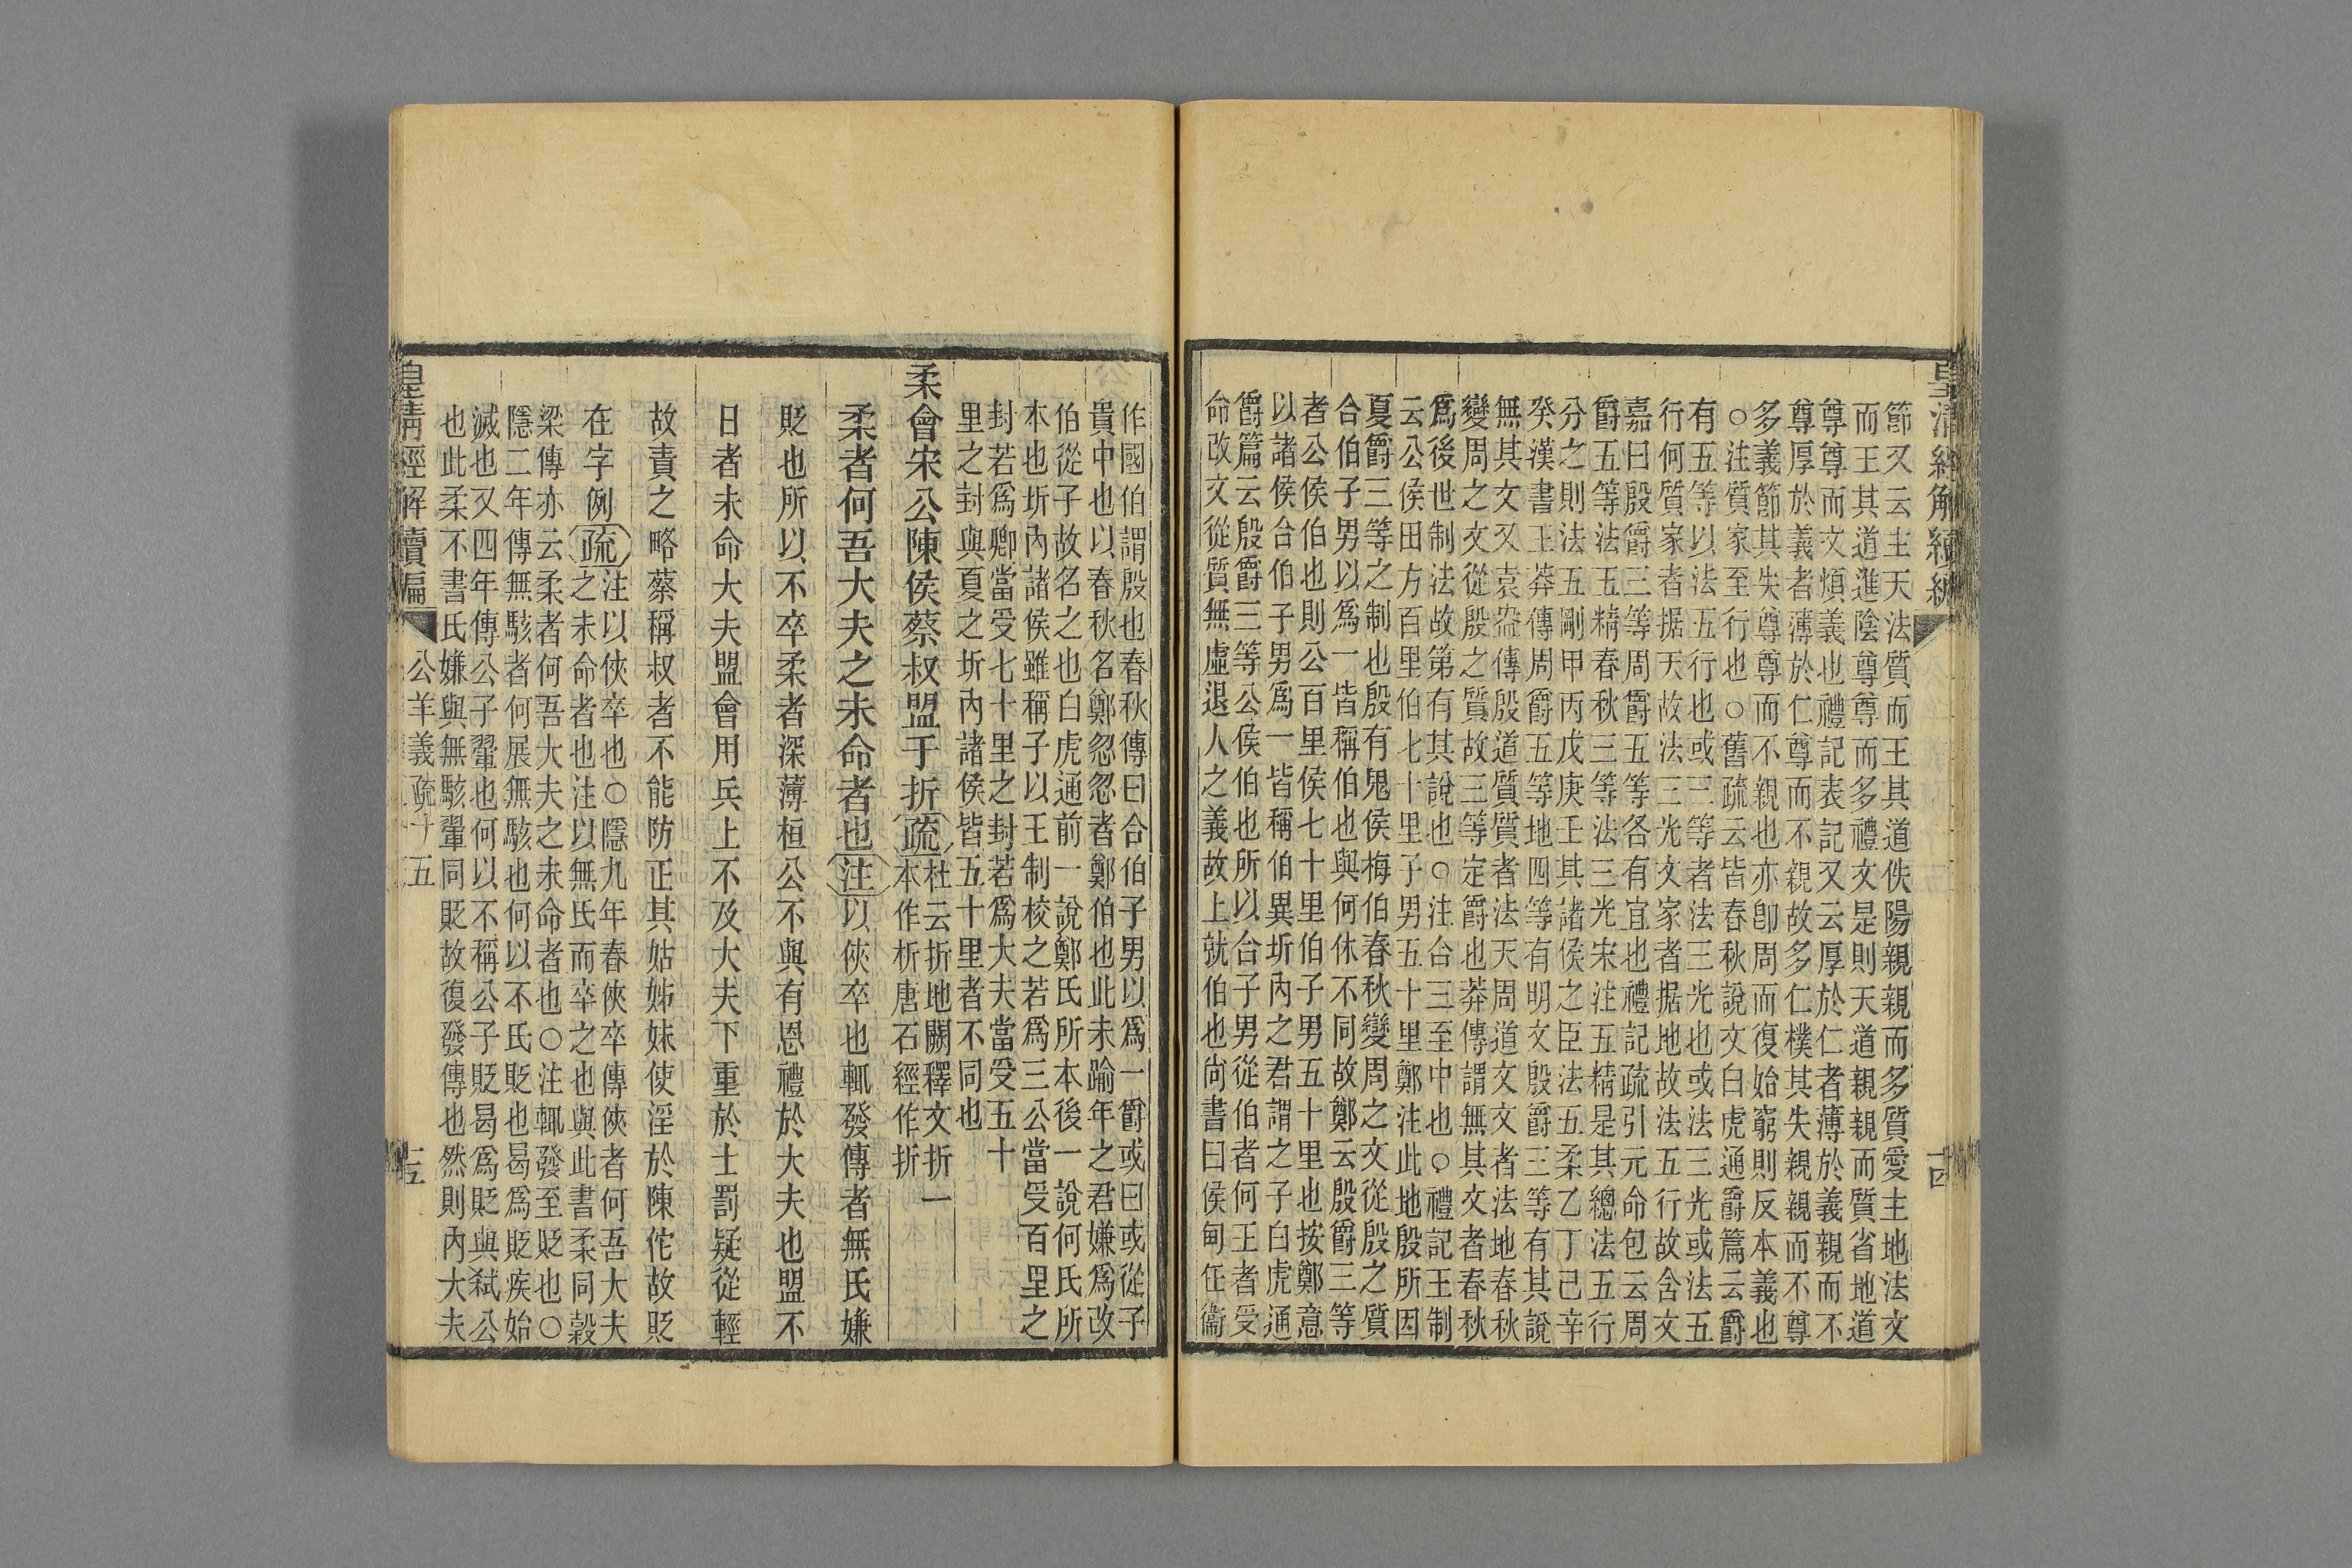 皇清經解續編
節又云主天法質而王其道佚陽親親而多質愛主地法文
而王其道進陰尊尊而多禮文是則天道親親而質省地道
尊尊而文煩義也禮記表記又云厚於仁者薄於義親而不
尊厚於義者薄於仁尊而不親故多仁樸其失親親而不尊
多義節其失尊尊而不親也亦卽周而復始窮則反本義也
○注質家至行也○舊疏云皆春秋說文白虎通爵篇云爵
有五等以法五行也或三等者法三光也或法三光或法五
行何質家者据天故法三光文家者据地故法五行故含文
嘉曰殷爵三等周爵五等各有宜也禮記疏引元命包云周
爵五等法五精春秋三等法三光宋注五精是其總法五行
分之則法五剛甲丙戊庚壬其諸侯之臣法五柔乙丁己辛
癸漢書王莽傳周爵五等地四等有明文殷爵三等有其說
無其文又袁盎傳殷道質質者法天周道文文者法地春秋
變周之文從殷之質故三等定爵也莽傳謂無其文者春秋
爲後世制法故第有其說也○注合三至中也○禮記王制
云公侯田方百里伯七十里子男五十里鄭注此地殷所因
夏爵三等之制也殷有鬼侯梅伯春秋變周之文從殷之質
合伯子男以爲一皆稱伯也與何休不同故鄭云殷爵三等
者公侯伯也則公百里侯七十里伯子男五十里也按鄭意
以諸侯合伯子男爲一皆稱伯異圻內之君謂之子白虎通
爵篇云殷爵三等公侯伯也所以合子男從伯者何王者受
命改文從質無虛退人之義故上就伯也尚書曰侯甸任衞
十四
作國伯謂殷也春秋傳曰合伯子男以爲一爵或曰或從子
貴中也以春秋名鄭忽忽者鄭伯也此未踰年之君嫌爲改
伯從子故名之也白虎通前一說鄭氏所本後一說何氏所
本也圻內諸侯雖稱子以王制校之若爲三公當受百里之
封若爲卿當受七十里之封若爲大夫當受五十
里之封與夏之圻內諸侯皆五十里者不同也
柔會宋公陳侯蔡叔盟于折疏杜云折地闕釋文折一
本作析唐石經作折
柔者何吾大夫之未命者也注以俠卒也輒發傳者無氏嫌
貶也所以不卒柔者深薄桓公不與有恩禮於大夫也盟不
日者未命大夫盟會用兵上不及大夫下重於士罰疑從輕
故責之略蔡稱叔者不能防正其姑姊妹使淫於陳佗故貶
在字例疏注以俠卒也○隱九年春俠卒傳俠者何吾大夫
之未命者也注以無氏而卒之也與此書柔同穀
梁傳亦云柔者何吾大夫之未命者也○注輒發至貶也○
隱二年傳無駭者何展無駭也何以不氏貶也曷爲貶疾始
滅也又四年傳公子翬也何以不稱公子貶曷爲貶與弒公
也此柔不書氏嫌與無駭翬同貶故復發傳也然則內大夫
皇清經解續編
公羊義疏十五
十五